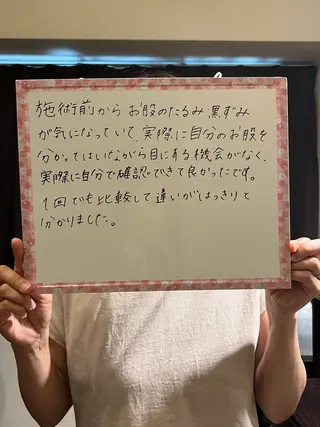 施術前からお股のたるみ、黒ずみ
が気になっていて、実際に自分のお股を
分かってはいながら目にする機会がなく、
実際に自分で確認できて良かったです。
1回でも比較して違いがはっきりと
分かりました。